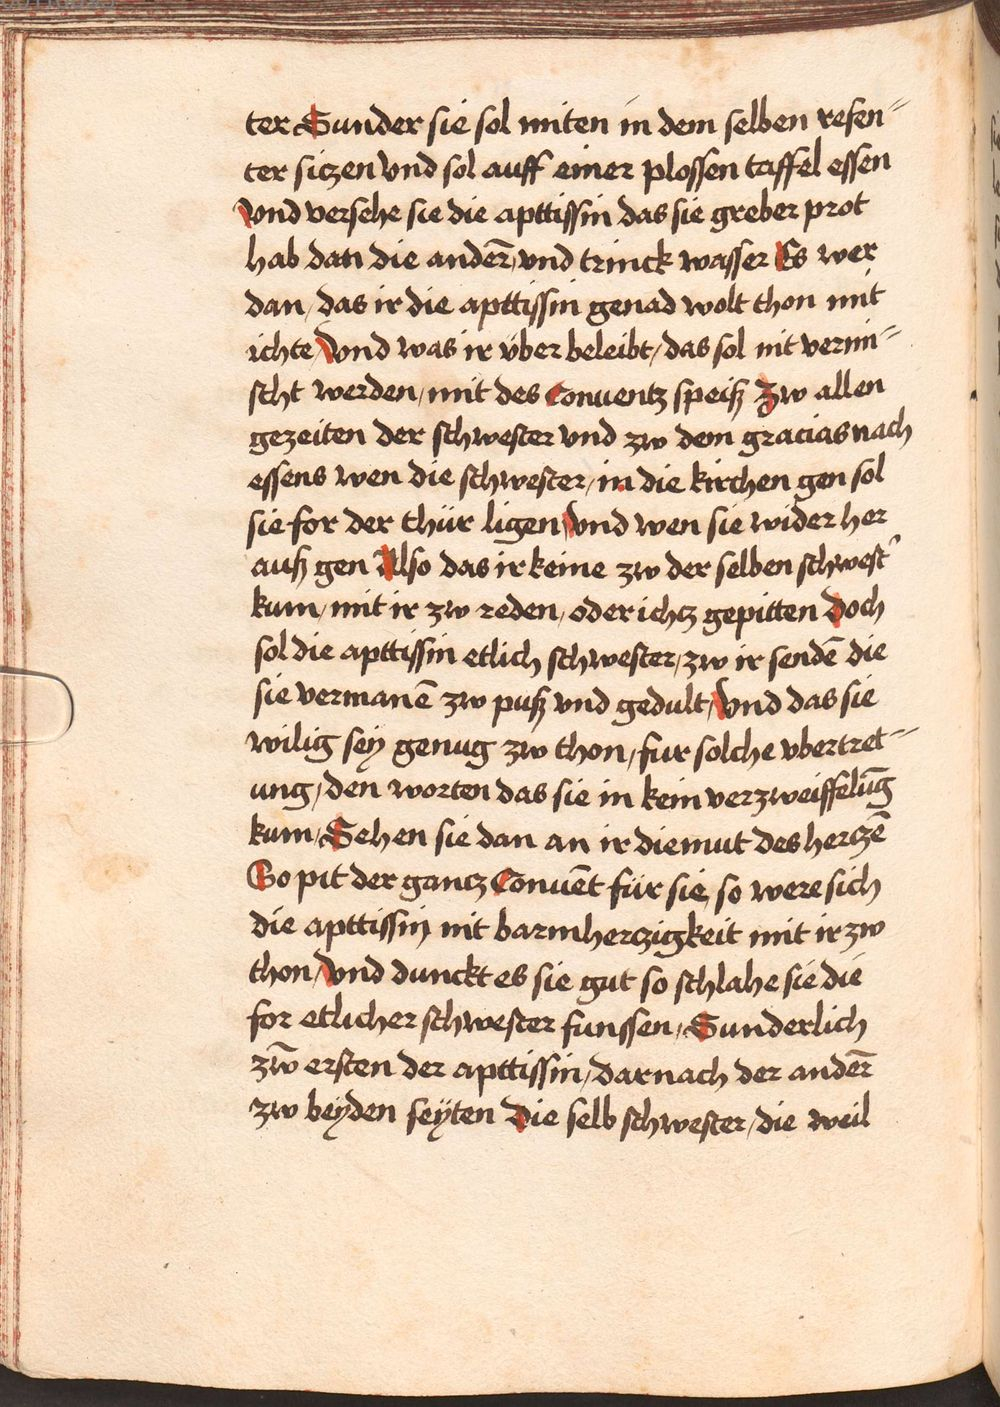 ter Sunder sie sol miten in dem selben refen⸗
ter siczen vnd sol auff einer plossen taffel essen
Vnd versehe sie die apttissin das sie greber prot
hab dan die anderē, vnd trinck wasser Es wer
dan, das ir die apttissin genad wolt thon mit
ichte, Vnd was ir über beleibt, das sol nit vermi⸗
scht werden, mit des Conuentz speiß Zw allen
gezeiten der schwester vnd zw dem gracias nach
essens wen die schwester, in die kirchen gen sol
sie for der thür ligen, Vnd wen sie wider her
auß gen Also das ir keine zw der selben schwest̛
kum, mit ir zw reden, oder ichcz gepitten Doch
sol die apttissin etlich schwester, zw ir sendē die
sie vermanē zw puß vnd gedult, Vnd das sie
wilig sey genug zw thon, fur solche vbertret⸗
ung, den worten das sie in kein verzweiffelūg
kum, Sehen sie dan an ir diemut des herczē
So pit der gancz Conuēt für sie, so were sich
die apttissin nit barmherczigkeit mit ir zw
thon, Vnd dunckt es sie gut so schlahe sie die
for etlicher schwester funssen, Sunderlich
zw̄ ersten der apttissin, darnach der anderē
zw beyden seÿten Die selb schwester, die weil